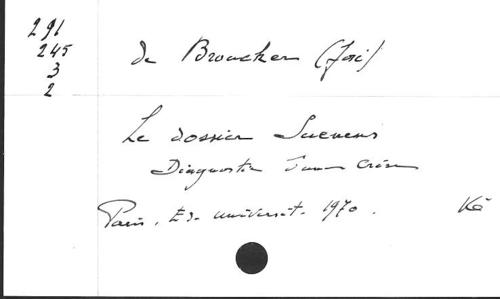 291
245
3
2
de Broucker (José)
Le dossier Suenens
Diagnostic d'une crise
Paris. Ed. universit. 1970.
Ké